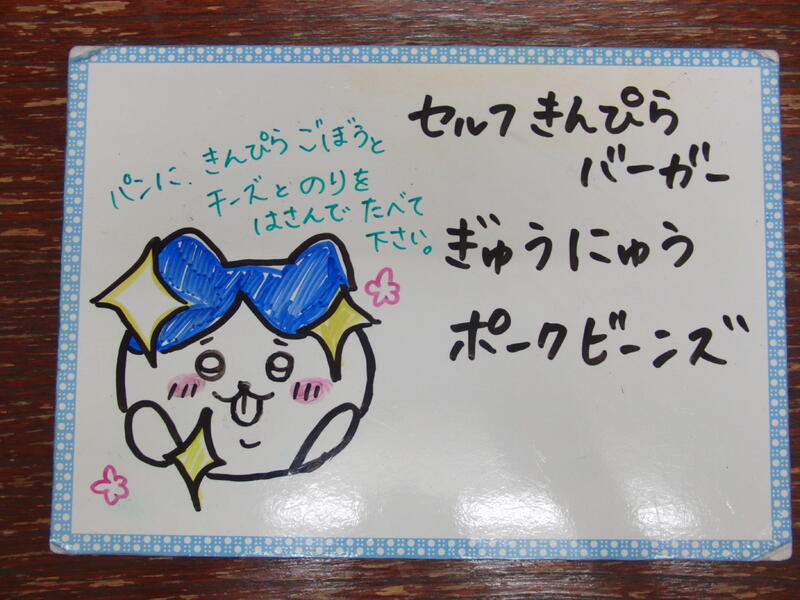 セルフきんぴら
バーガー
ぎゅうにゅう
ポークビーンズ
パンに きんぴらごぼうと
チーズと のりを
はさんで たべて
下さい。